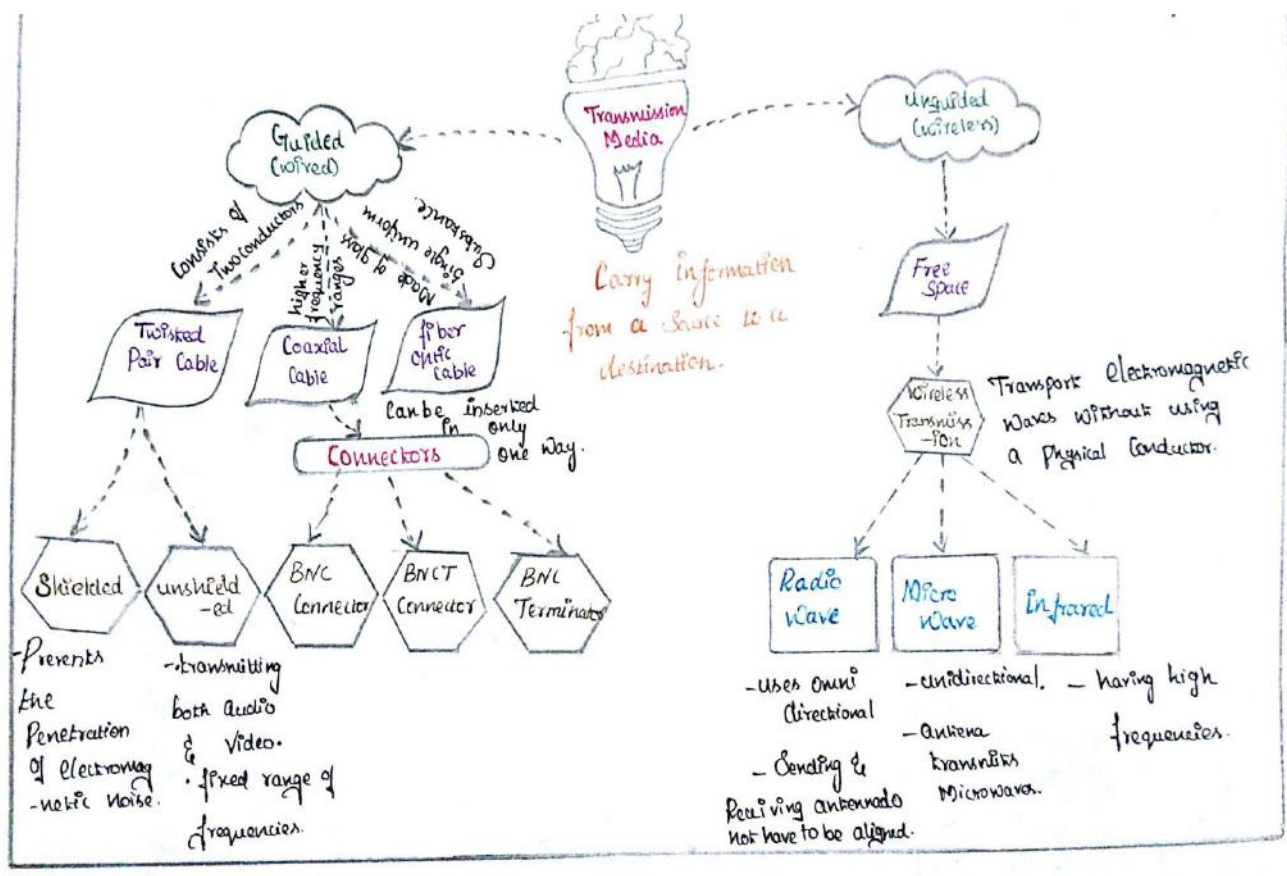 Transmission
Media
Carry information
from a source to a
destination.
Guided
(wired)
Consists of
Two conductors
higher
frequency
ranges
Made of glass
Single uniform
Substance.
Twisted
Pair Cable
Coaxial
Cable
fiber
Optic
Cable
Can be inserted
in only
one way.
Connectors
Shielded
unshield
-ed
BNC
Connector
BNCT
Connector
BNC
Terminator
-Prevents
the
Penetration
of electromag
-netic noise.
-.transmitting
both audio
& video.
. fixed range of
frequencies.
Unguided
(wireless)
Free
Space
Wireless
Transmiss
-ion
Transport electromagnetic
waves without using
a physical conductor.
Radio
wave
Micro
wave
Infrared
-uses omni
directional
- Sending &
Receiving antennado
not have to be aligned.
-unidirectional.
-antena
transmits
Microwaves.
- having high
frequencies.